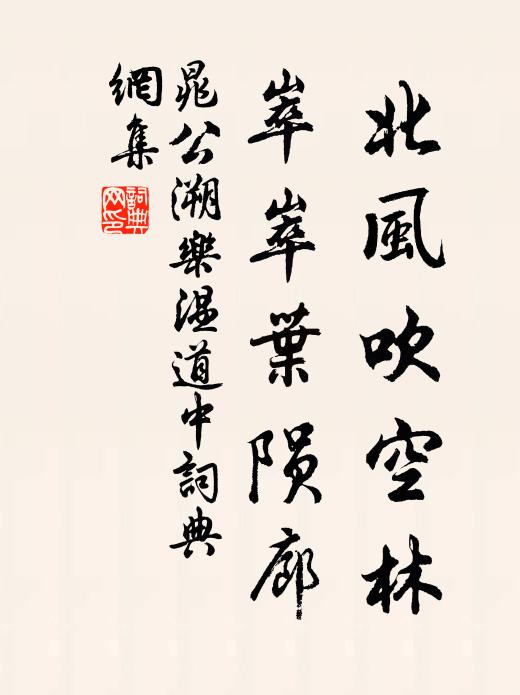 北風吹空林
崒崒葉陨廊
晁公溯樂温道中詞典
網集
詞典
网印